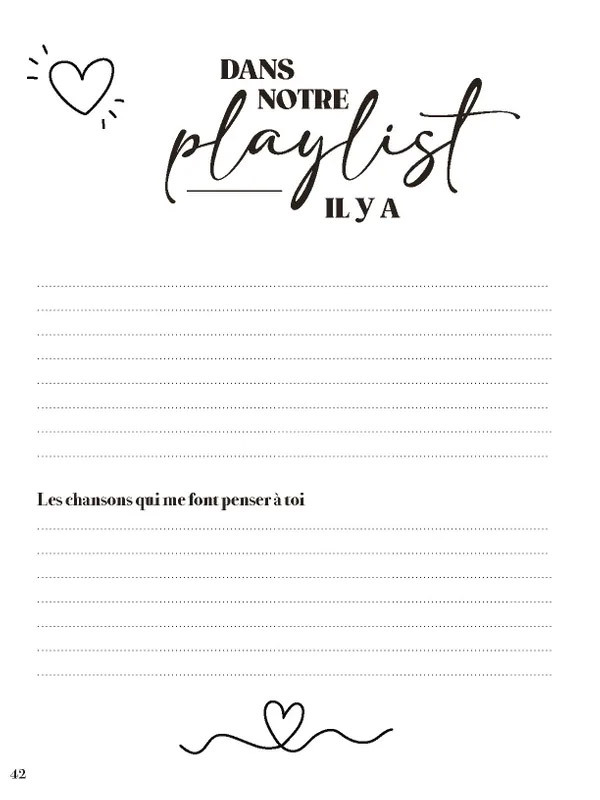 DANS
NOTRE
playlist
IL Y A
Les chansons qui me font penser à toi
42